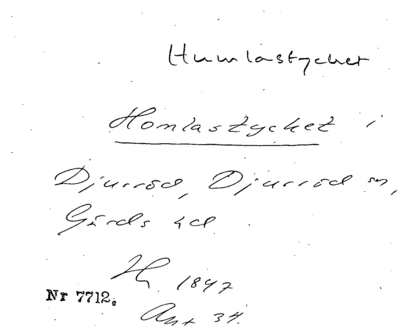 Humlastycket
Homlastycket i
Djurröd, Djurröd sn,
Gärds hd.
1847
Nr 7712.
Ant 34.